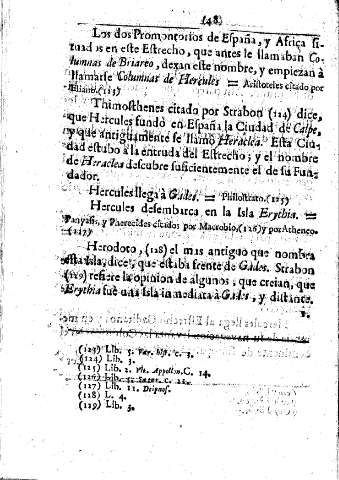 (48)
Los dos Promontorios de España, y Africa si-
tuadas en este Estrecho, que antes le llamaban Co-
lumnas de Briareo, dexan este nombre, y empiezan à
llamarse Columnas de Hercules = Aristoteles citado por
Eliano. (123)
Thimosthenes citado por Strabon (124) dice,
que Hercules fundò en España la Ciudad de Calpe,
y que antiguamente se llamò Heraclea. Esta Ciu-
dad estubo à la entruda del Estrecho; y el nombre
de Heraclea descubre suficientemente el de su Fun-
dador.
Hercules llega à Gades. = Philostrato. (125)
Hercules desembarca en la Isla Erythia. =
Panyasis, y Pherecides citados por Macrobio, (126) y por Atheneo.
(127)
Herodoto, (128) el mas antiguo que nombra
esta Isla, dice, que estaba frente de Gades. Strabon
(129) refiere la opinion de algunos, que creian, que
Erythia fue una Isla inmediata à Gades, y distante
(123) Lib. 5. Var. hist. c. 3.
(124) Lib. 3.
(125) Lib. 2. Vit. Appollon. C. 14.
(126) Lib. 5. Satur. C. 21.
(127) Lib. 11. Deipnos.
(128) L. 4.
(129) Lib. 3.